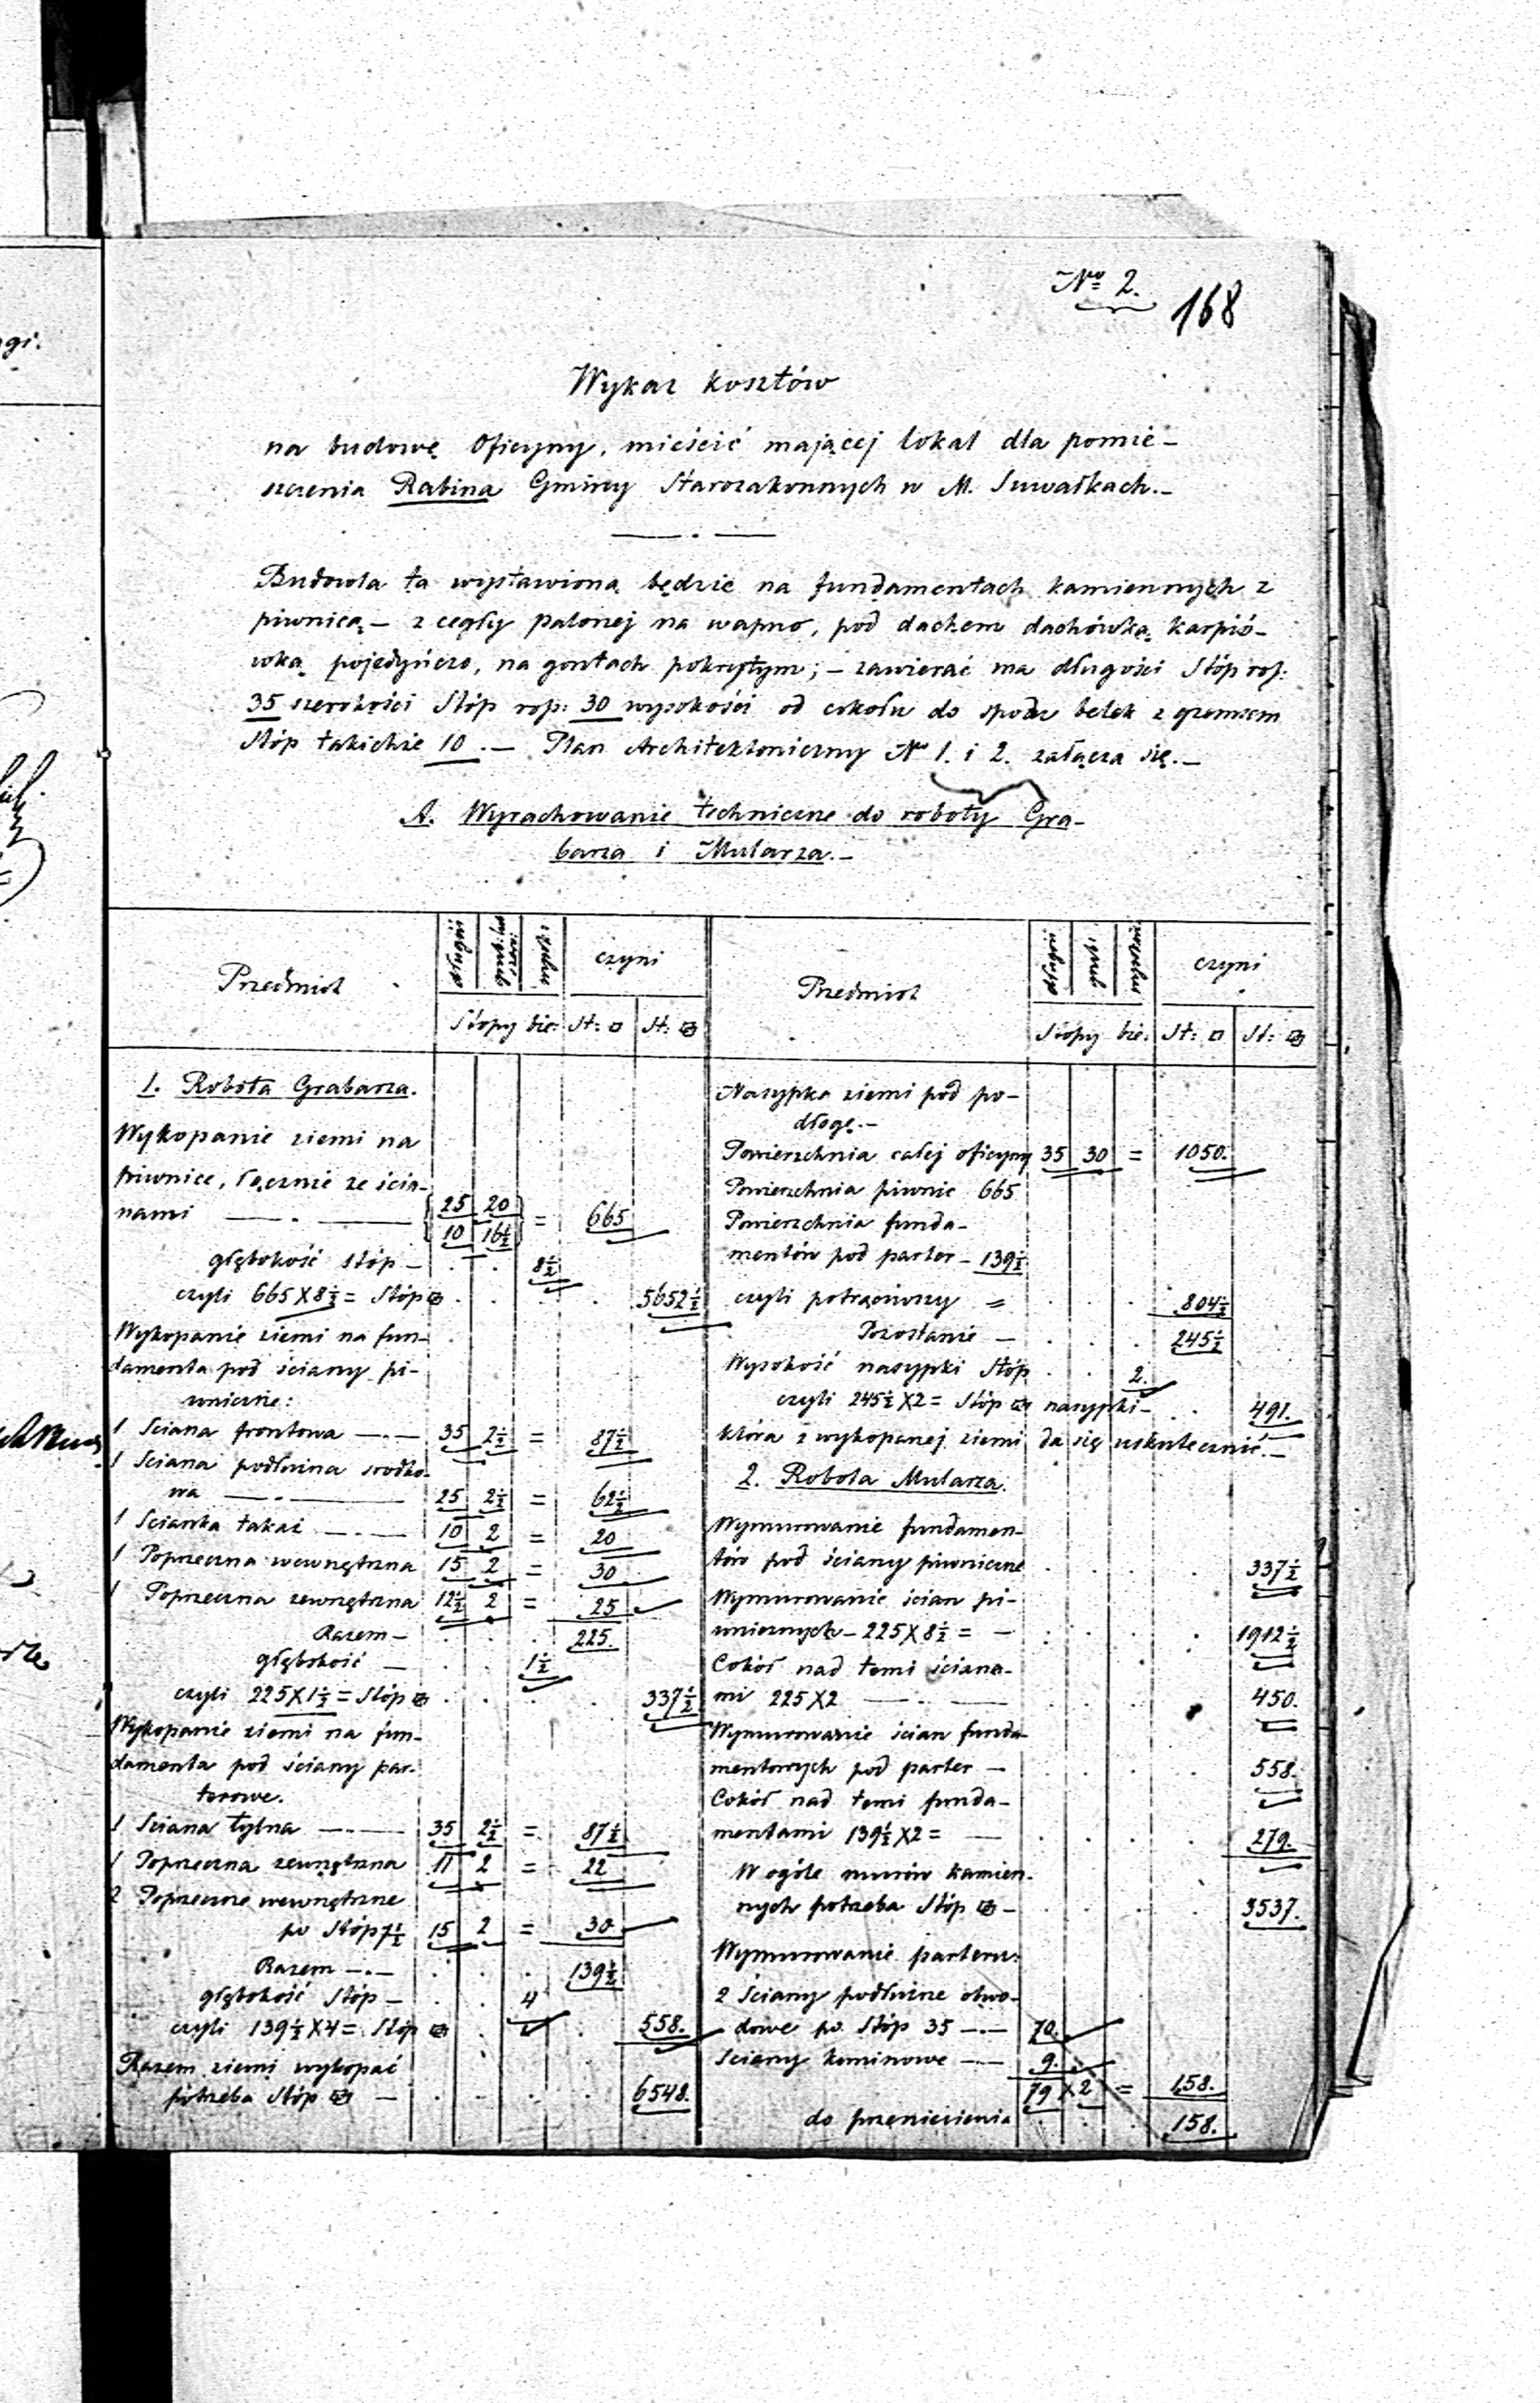 No 2.
168
Wykaz kosztów
na budowę Oficyny, mieścić mającej lokal dla pomie-
szczenia Rabina Gminy Starozakonnych w M. Suwałkach.-
Budowla ta wystawiona będzie na fundamentach kamiennych z
piwnicą - z cegły palonej na wapno, pod dachem dachówką karpió-
wką pojedyńczo, na gontach pokrytym; - zawierać ma długości Stóp ros:
35 szerokości Stóp rosp: 30 wysokości od cokołu do spodu belek z gzemsem
Stóp takichże 10. - Plan Architektoniczny No 1. i 2. załącza się.-
A. Wyrachowanie techniczne do roboty Gra-
barza i Mularza.-
Przedmiot czyni
Stopy bie: St: □ St:
1. Robota Grabarza.
Wykopanie ziemi na
piwnice, łącznie ze ścia-
nami 25 20 = 665
10 16½
głębokość stóp - 8½
czyli 665 X 8½ = Stóp 5652½
Wykopanie ziemi na fun-
damenta pod ściany pi-
wniczne:
1 Sciana frontowa 35 2½ = 87½
1 Sciana podłużna środko-
wa 25 2½ = 62½
1 Scianka takaż 10 2 = 20
1 Poprzeczna wewnętrzna 15 2 = 30
1 Poprzeczna zewnętrzna 12½ 2 = 25
Razem - 225.
głębokość - 1½
czyli 225 X 1½ = Stóp 337½
Wykopanie ziemi na fun-
damenta pod ściany par-
terowe.
1 Sciana tylna 35 2½ = 87½
1 Poprzeczna zewnętrzna 11 2 = 22
2 Poprzeczne wewnętrzne
po Stóp 7½ 15 2 = 30
Razem 139½
głębokość Stóp - 4
czyli 139½ X 4 = Stóp 558.
Razem ziemi wykopać
potrzeba Stóp - 6548.
Przedmiot długość grubość wysokość czyni
Stopy bie: St: □ St:
Nasypka ziemi pod po-
dłogę.-
Powierzchnia całej oficyny 35 30 = 1050.
Powierzchnia piwnic 665
Powierzchnia funda-
mentów pod parter - 139½
czyli potrąciwszy = 804½
Pozostanie - 245½
Wysokość nasypki Stóp 2.
czyli 245½ X 2 = Stóp nasypki - 491.
która z wykopanej ziemi da się uskutecznić.-
2. Robota Mularza.
Wymurowanie fundamen-
tów pod ściany piwniczne 337½
Wymurowanie ścian pi-
wnicznych - 225 X 8½ = - 1912½
Cokół nad temi ściana-
mi 225 X 2 450.
Wymurowanie ścian funda-
mentowych pod parter - 558.
Cokół nad temi funda-
mentami 139½ X 2 = 279.
W ogóle murów kamien-
nych potrzeba Stóp - 3537.
Wymurowanie parteru:
2 Ściany podłużne obwo-
dowe po Stóp 35 70.
Sciany kominowe 9.
79 X 2 = 158.
do przeniesienia 158.